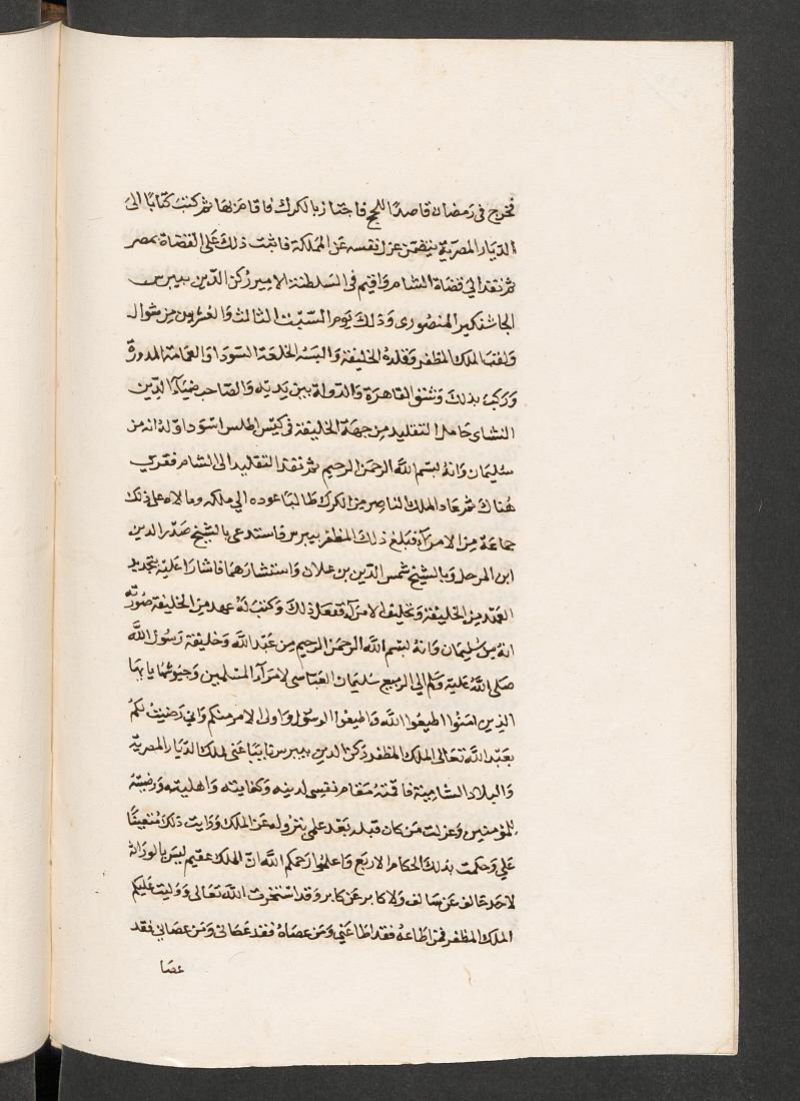 فخرج فى رمضان قاصدًا للحج فاجتاز بالكرك فاقام بها ثم كتب كتابًا الى
الديار المصرية يتضمن عزل نفسه عن المملكة فاثبت ذلك على القضاة بمصر
ثم نفذ الي قضاة الشام واقيم فى السلطنة الامير ركن الدين بيبرس
الجاشنكير المنصورى وذلك يوم السبت الثالث والعشرين من شوال
ولقب الملك المظفر وقلده الخليفة والبسه الخلعة السودا والعمامة المدورة
وركب بذلك وشق القاهرة والدولة بين يديه والصاحب ضياء الدين
النشاى حامل التقليد من جهة الخليفة فى كيس اطلس اسود اوله انه من
سليمان وانه لبسم الله الرحمن الرحيم ثم نفذ التقليد الى الشام فقرى
هناك ثم عاد الملك الناصر من الكرك طالبا عوده الي ملكه ومالاه على ذلك
جماعة من الامراء فبلغ ذلك المظفر بيبرس فاستدعى بالشيخ صدر الدين
ابن المرحل وبالشيخ شمس الدين بن علان واستشارهما فاشارا عليه بتجديد
العهد من الخليفة وتحليف الامراء ففعل ذلك وكتب له عهد من الخليفة صورته
انه من سليمان وانه لبسم الله الرحمن الرحيم من عبد الله وخليفة رسول الله
صلى الله عليه وسلم الي الربيع سليمان العباسى لامراء المسلمين وجيوشها يا يها
الذين امنوا اطيعوا الله واطيعوا الرسول واولى الامر منكم واني رضيت لكم
بعبد الله تعالى الملك المظفر ركن الدين بيبرس نايبا عنى لملك الديار المصرية
والبلاد الشامية فاقمته مقام نفسى لدينه وكفايته واهليته ورضيته
للمؤمنين وعزلت من كان قبله بعد علمى بنزوله عن الملك ورايت ذلك متعينًا
علي وحكمت بذلك الحكام الاربع واعلموا رحمكم الله ان الملك عقيم ليس بالوراثة
لاحد خالف عن سالف ولا كابر عن كابر وقد استخرت الله تعالى ووليت عليكم
الملك المظفر فمن اطاعه فقد اطاعنى ومن عصاه فقد عصانى ومن عصانى فقد
عصا